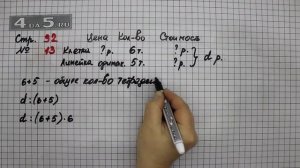 4 DA 5 .RU
Стр. 92 Цена Кол-во Стоимость
№ 13 Клетка ?р. 6т. ?р.
Линейка одинак. 5т. ?р. } d р.
6+5 - общее кол-во тетрадей
d:(6+5)
d:(6+5)·6